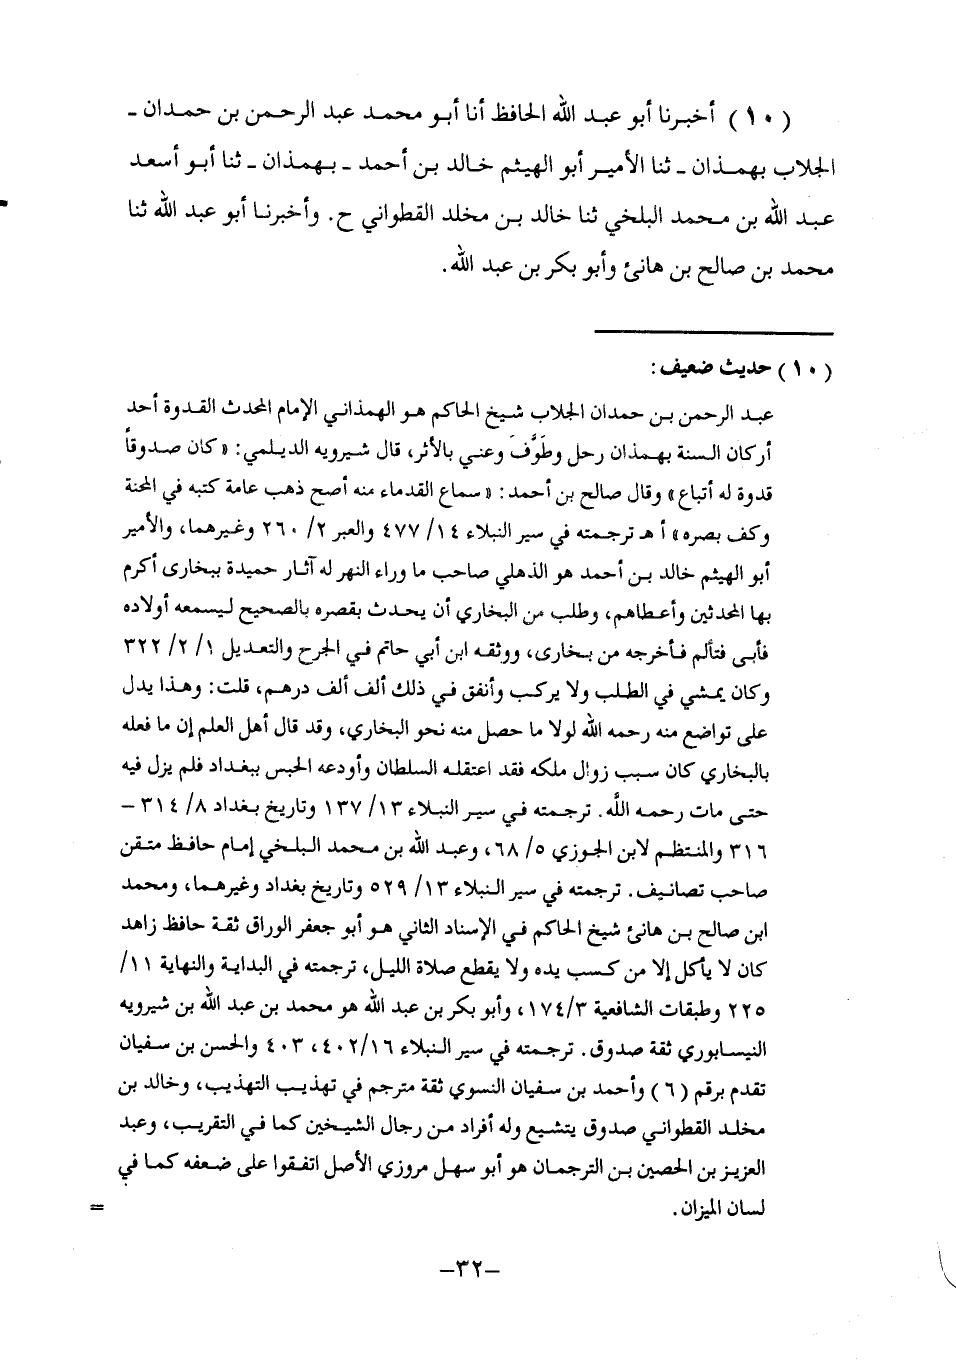 (١٠) أخبرنا أبو عبد الله الحافظ أنا أبو محمد عبد الرحمن بن حمدان ـ
الجلاب بهمذان ـ ثنا الأمير أبو الهيثم خالد بن أحمد ـ بهمذان ـ ثنا أبو أسعد
عبد الله بن محمد البلخي ثنا خالد بن مخلد القطواني ح. وأخبرنا أبو عبد الله ثنا
محمد بن صالح بن هانئ وأبو بكر بن عبد الله.
(١٠) حديث ضعيف:
عبد الرحمن بن حمدان الجلاب شيخ الحاكم هو الهمذاني الإمام المحدث القدوة أحد
أركان السنة بهمذان رحل وطَوَّفَ وعني بالأثر، قال شيرويه الديلمي: «كان صدوقاً
قدوة له أتباع» وقال صالح بن أحمد: «سماع القدماء منه أصح ذهب عامة كتبه في المحنة
وكف بصره» أهـ ترجمته في سير النبلاء ١٤/ ٤٧٧ والعبر ٢/ ٢٦٠ وغيرهما، والأمير
أبو الهيثم خالد بن أحمد هو الذهلي صاحب ما وراء النهر له آثار حميدة ببخارى أكرم
بها المحدثين وأعطاهم، وطلب من البخاري أن يحدث بقصره بالصحيح ليسمعه أولاده
فأبى فتألم فأخرجه من بخارى، ووثقه ابن أبي حاتم في الجرح والتعديل ١/ ٢/ ٣٢٢
وكان يمشي في الطلب ولا يركب وأنفق في ذلك ألف ألف درهم، قلت: وهذا يدل
على تواضع منه رحمه الله لولا ما حصل منه نحو البخاري، وقد قال أهل العلم إن ما فعله
بالبخاري كان سبب زوال ملكه فقد اعتقله السلطان وأودعه الحبس ببغداد فلم يزل فيه
حتى مات رحمه اللَّه. ترجمته في سير النبلاء ١٣/ ١٣٧ وتاريخ بغداد ٨/ ٣١٤ –
٣١٦ والمنتظم لابن الجوزي ٥/ ٦٨، وعبد الله بن محمد البلخي إمام حافظ متقن
صاحب تصانيف. ترجمته في سير النبلاء ١٣/ ٥٢٩ وتاريخ بغداد وغيرهما، ومحمد
ابن صالح بن هانئ شيخ الحاكم في الإسناد الثاني هو أبو جعفر الوراق ثقة حافظ زاهد
كان لا يأكل إلا من كسب يده ولا يقطع صلاة الليل، ترجمته في البداية والنهاية ١١/
٢٢٥ وطبقات الشافعية ٣/ ١٧٤، وأبو بكر بن عبد الله هو محمد بن عبد الله بن شيرويه
النيسابوري ثقة صدوق. ترجمته في سير النبلاء ١٦/ ٤٠٢، ٤٠٣ والحسن بن سفيان
تقدم برقم (٦) وأحمد بن سفيان النسوي ثقة مترجم في تهذيب التهذيب، وخالد بن
مخلد القطواني صدوق يتشيع وله أفراد من رجال الشيخين كما في التقريب، وعبد
العزيز بن الحصين بن الترجمان هو أبو سهل مروزي الأصل اتفقوا على ضعفه كما في
لسان الميزان. =
–٣٢–